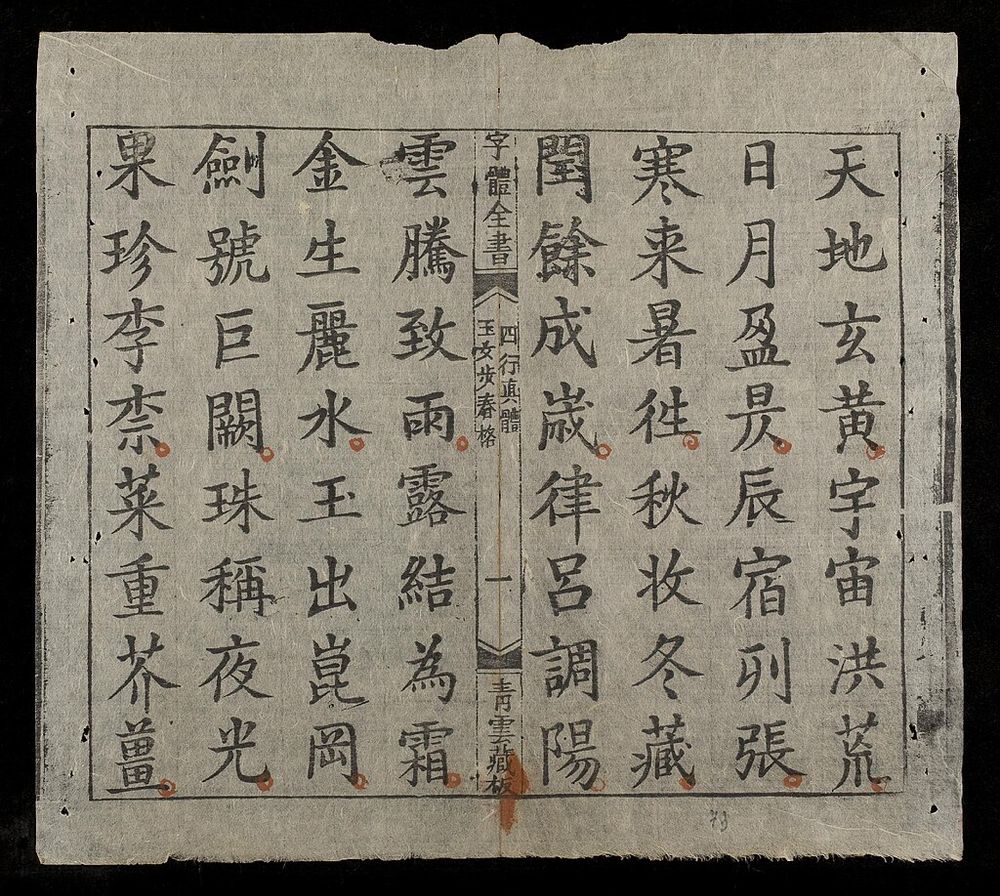 天地玄黄宇宙洪荒
日月盈昃辰宿列張
寒来暑徃秋收冬藏
閏餘成嵗律呂調陽
字體全書
四行真體
玉女步春格
一
青雲藏板
雲騰致雨露結為霜
金生麗水玉出崑岡
劍號巨闕珠稱夜光
果珍李柰菜重芥薑
79